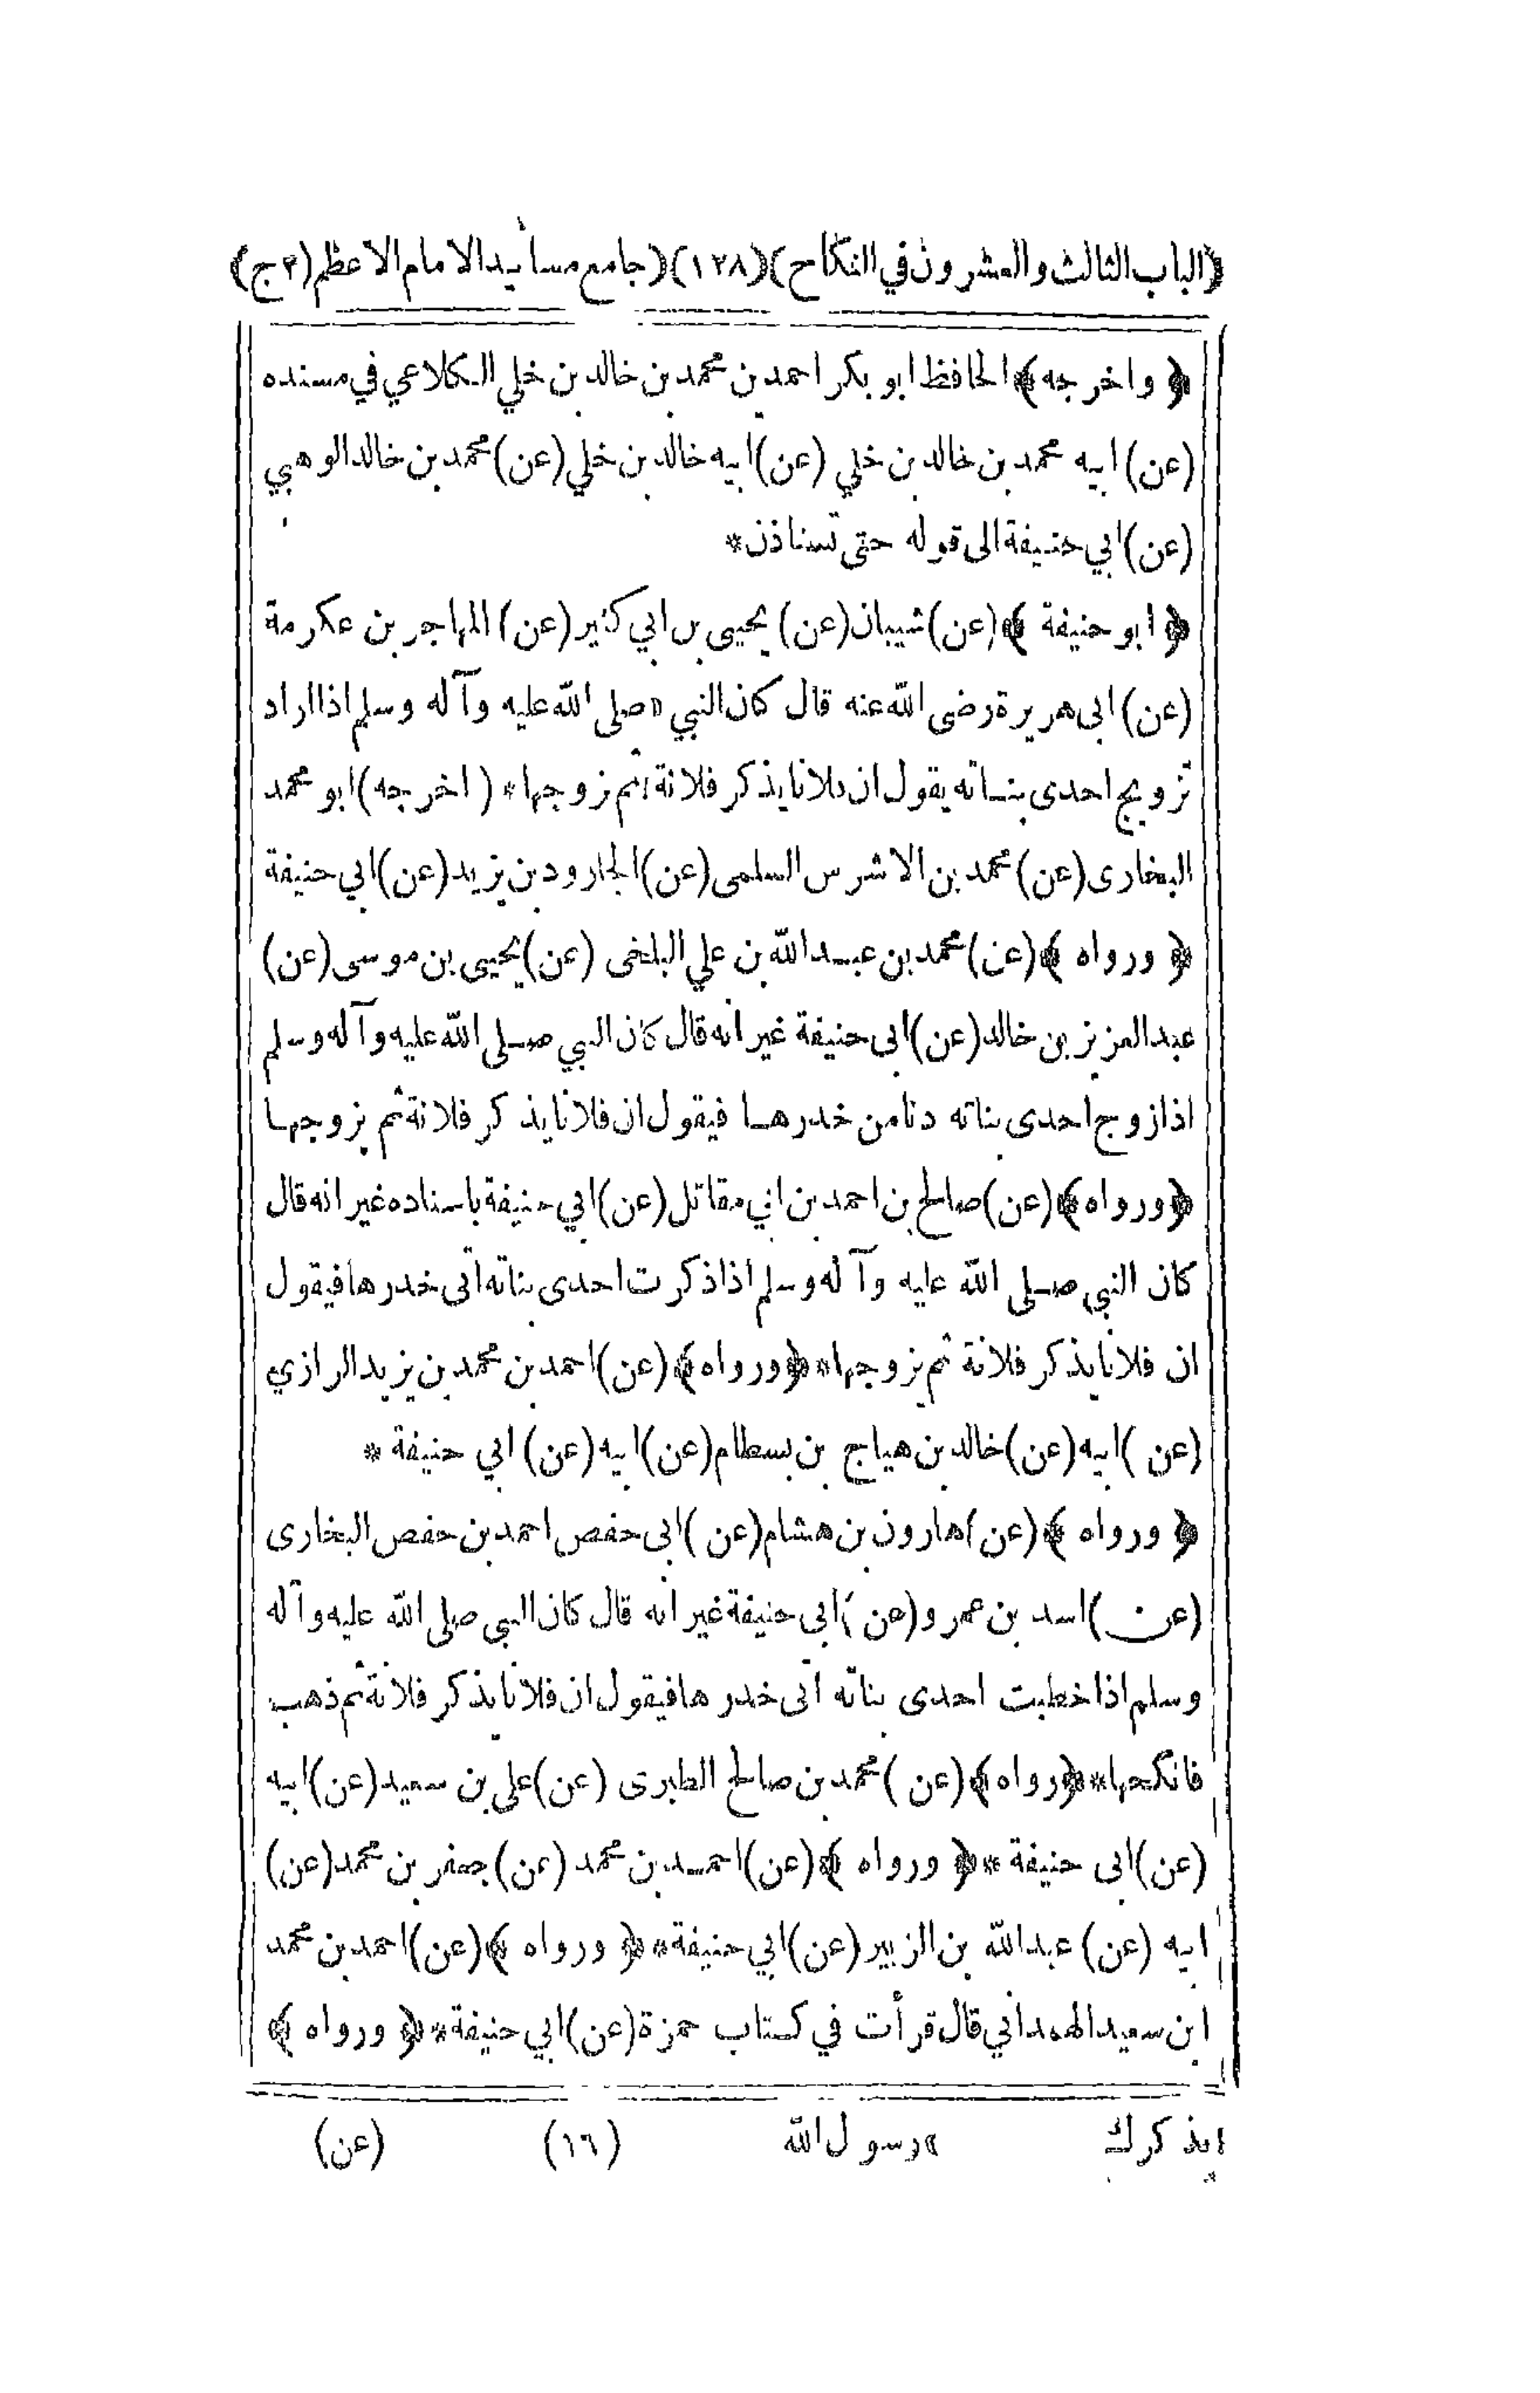 (الباب الثالث والعشرون في النكاح) (١٢٨) (جامع مسانيد الامام الاعظم (ج٢)
﴿ واخرجه ﴾ الحافظ ابو بكر احمد بن محمد بن خالد بن خلي الكلاعي في مسنده
(عن) ابيه محمد بن خالد بن خلي (عن) ابيه خالد بن خلي (عن) محمد بن خالد الوهبي
(عن) ابي حنيفة الى قوله حتى تستاذن *
﴿ ابو حنيفة ﴾ (عن) شيبان (عن) يحيى بن ابي كثير (عن) المهاجر بن عكرمة
(عن) ابى هريرة رضى الله عنه قال كان النبي ٢ صلى الله عليه وآله وسلم اذا اراد
تزويج احدى بنـاته يقول ان فلانا يذكر فلانة ١ ثم زوجها * (اخرجه) ابو محمد
البخارى (عن) محمد بن الاشرس السلمى (عن) الجارود بن يزيد (عن) ابي حنيفة
﴿ ورواه ﴾ (عن) محمد بن عبـد الله بن علي البلخى (عن) يحيى بن موسى (عن)
عبد العزيز بن خالد (عن) ابى حنيفة غير انه قال كان النبي صـلى الله عليه وآله وسلم
اذا زوج احدى بناته دنا من خدرهـا فيقول ان فلانا يذكر فلانة ثم يزوجهـا
﴿ورواه﴾ (عن) صالح بن احمد بن ابي مقاتل (عن) ابي حنيفة باسناده غير انه قال
كان النبي صـلى الله عليه وآله وسلم اذا ذكرت احدى بناته اتى خدرها فيقول
ان فلانا يذكر فلانة ثم يزوجها * ﴿ورواه﴾ (عن) احمد بن محمد بن يزيد الرازي
(عن) ابيه (عن) خالد بن هياج بن بسطام (عن) ابيه (عن) ابي حنيفة *
﴿ ورواه ﴾ (عن) هارون بن هشام (عن) ابى حفص احمد بن حفص البخارى
(عن) اسد بن عمرو (عن) ابى حنيفة غير انه قال كان النبي صلى الله عليه وآله
وسلم اذا خطبت احدى بناته اتى خدرها فيقول ان فلانا يذكر فلانة ثم ذهب
فانكحها * ﴿رواه﴾ (عن) محمد بن صالح الطبرى (عن) على بن سعيد (عن) ابيه
(عن) ابى حنيفة * ﴿ ورواه ﴾ (عن) احمـد بن محمد (عن) جعفر بن محمد (عن)
ابيه (عن) عبد الله بن الزبير (عن) ابي حنيفة * ﴿ ورواه ﴾ (عن) احمد بن محمد
ابن سعيد الهمداني قال قرأت في كـتاب حمزة (عن) ابي حنيفة * ﴿ ورواه ﴾
١ يذكرك ٢ رسول الله (١٦) (عن)